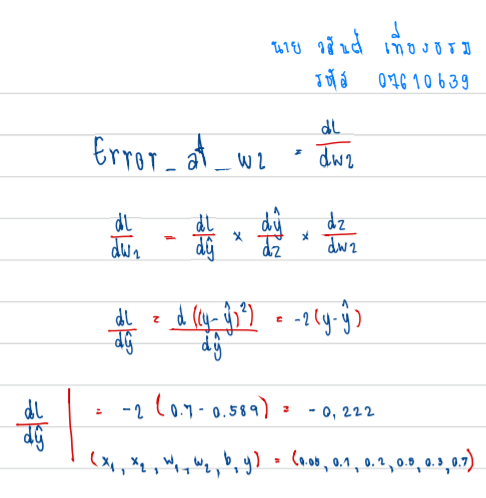 นาย วสันต์ เที่ยงธรรม
รหัส 07610639
Error_at_w2 = dL/dw2
dL/dw2 = dL/dŷ × dŷ/dz × dz/dw2
dL/dŷ = d((y-ŷ)²)/dŷ = -2(y-ŷ)
dL/dŷ | = -2(0.7-0.589) = -0,222
(x₁, x₂, w₁, w₂, b, y) = (0.05, 0.1, 0.2, 0.5, 0.3, 0.7)